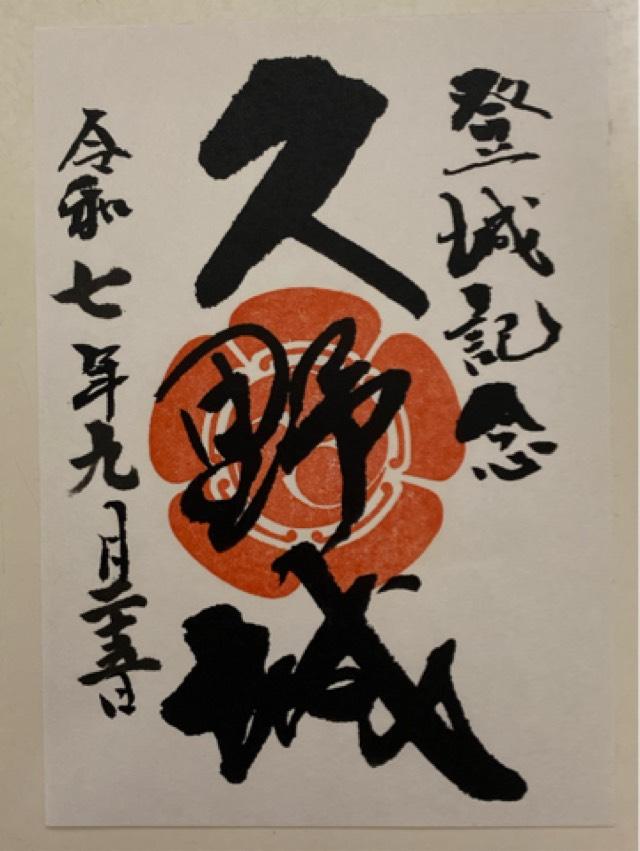 登城記念
久野城
令和七年九月二十五日